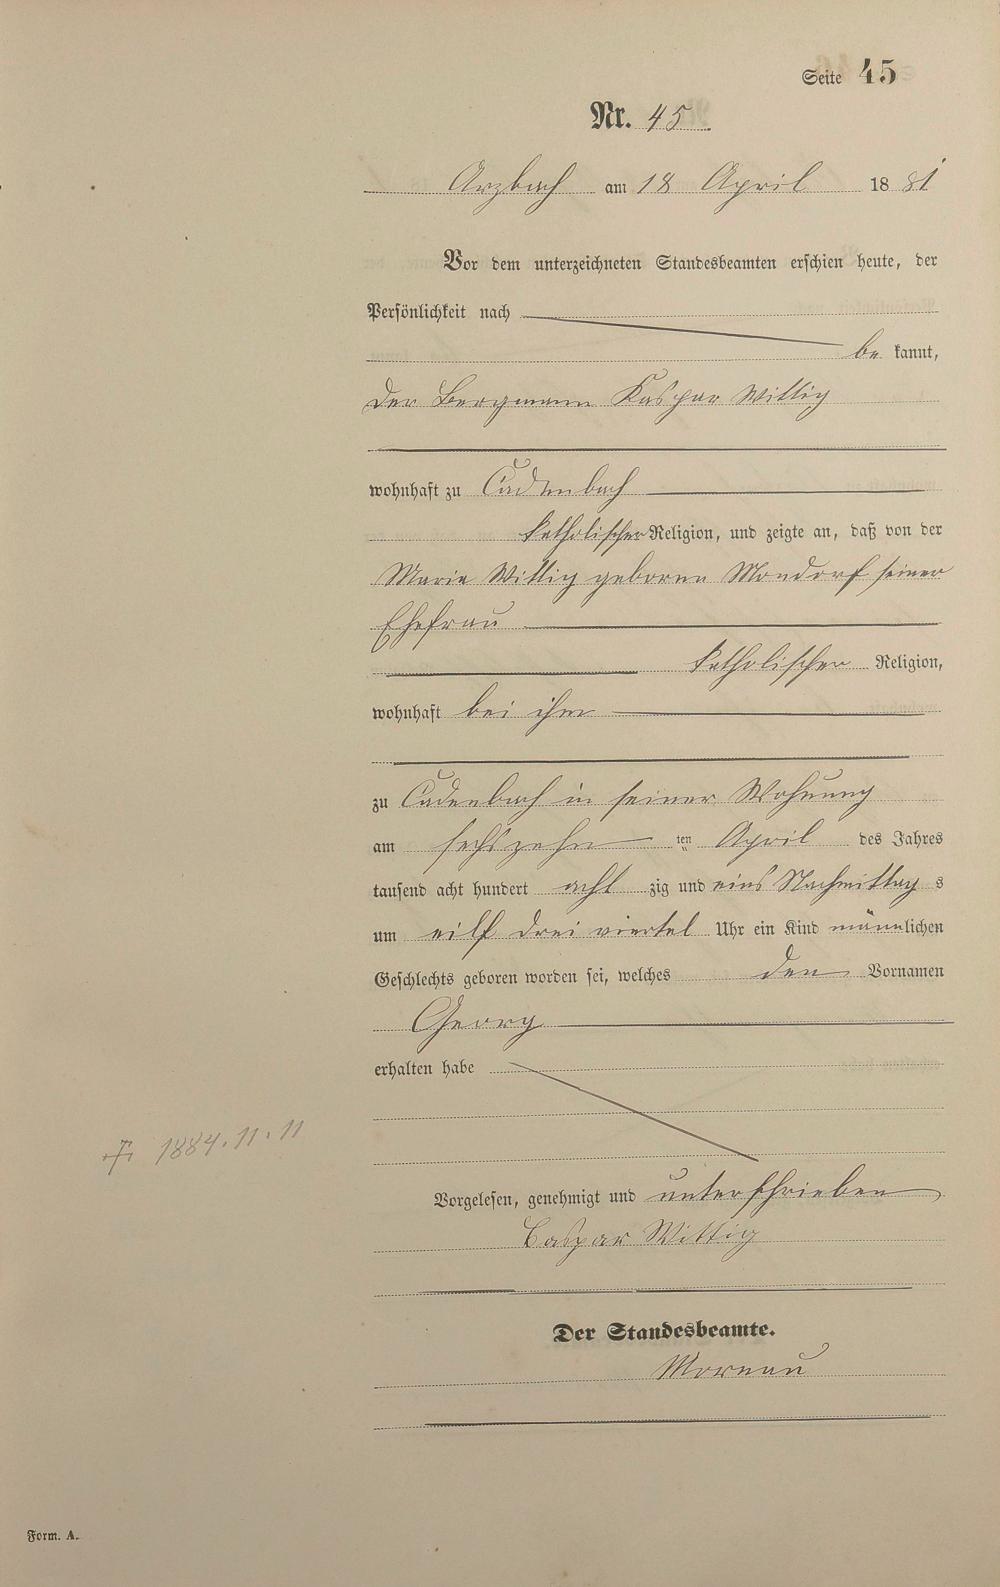 Seite 45
Nr. 45
Arzbach am 18 April 1881
Vor dem unterzeichneten Standesbeamten erschien heute, der
Persönlichkeit nach
be kannt,
der Bergmann Kaspar Wittig
wohnhaft zu Cadenbach
katholischer Religion, und zeigte an, daß von der
Maria Wittig geborne Mondorf seiner
Ehefrau
katholischer Religion,
wohnhaft bei ihm
zu Cadenbach in seiner Wohnung
am sechszehn ten April des Jahres
tausend acht hundert acht zig und eins Nachmittag s
um eilf drei viertel Uhr ein Kind männlichen
Geschlechts geboren worden sei, welches den Vornamen
Georg
erhalten habe
† 1884.11.11
Vorgelesen, genehmigt und unterschrieben
Caspar Wittig
Der Standesbeamte.
Form. A.